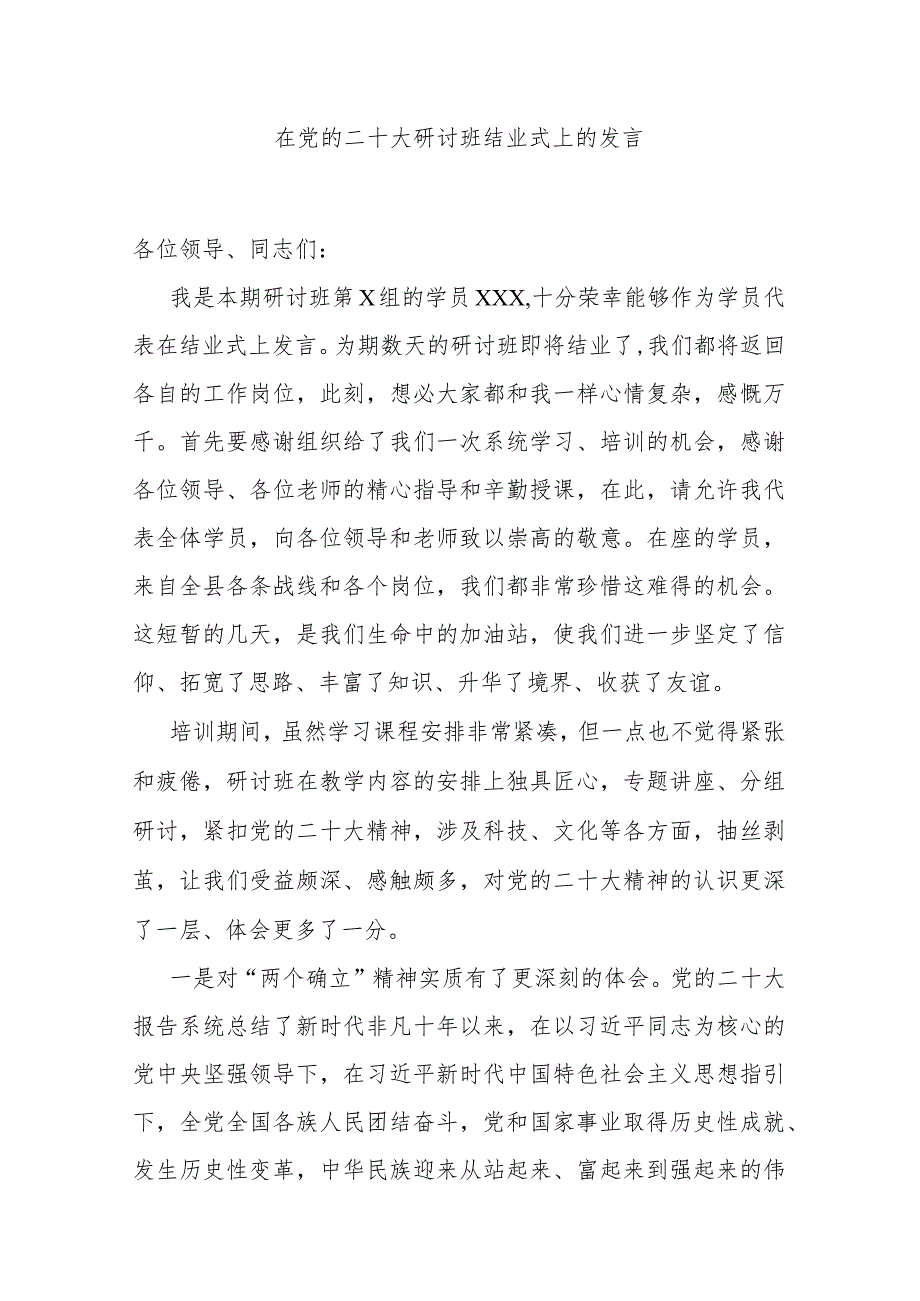 在党的二十大研讨班结业式上的发言
各位领导、同志们：
我是本期研讨班第X组的学员XXX,十分荣幸能够作为学员代
表在结业式上发言。为期数天的研讨班即将结业了,我们都将返回
各自的工作岗位，此刻，想必大家都和我一样心情复杂，感慨万
千。首先要感谢组织给了我们一次系统学习、培训的机会，感谢
各位领导、各位老师的精心指导和辛勤授课，在此，请允许我代
表全体学员，向各位领导和老师致以崇高的敬意。在座的学员，
来自全县各条战线和各个岗位，我们都非常珍惜这难得的机会。
这短暂的几天，是我们生命中的加油站，使我们进一步坚定了信
仰、拓宽了思路、丰富了知识、升华了境界、收获了友谊。
培训期间，虽然学习课程安排非常紧凑，但一点也不觉得紧张
和疲倦，研讨班在教学内容的安排上独具匠心，专题讲座、分组
研讨，紧扣党的二十大精神，涉及科技、文化等各方面，抽丝剥
茧，让我们受益颇深、感触颇多，对党的二十大精神的认识更深
了一层、体会更多了一分。
一是对“两个确立”精神实质有了更深刻的体会。党的二十大
报告系统总结了新时代非凡十年以来，在以习近平同志为核心的
党中央坚强领导下，在习近平新时代中国特色社会主义思想指引
下，全党全国各族人民团结奋斗，党和国家事业取得历史性成就、
发生历史性变革，中华民族迎来从站起来、富起来到强起来的伟